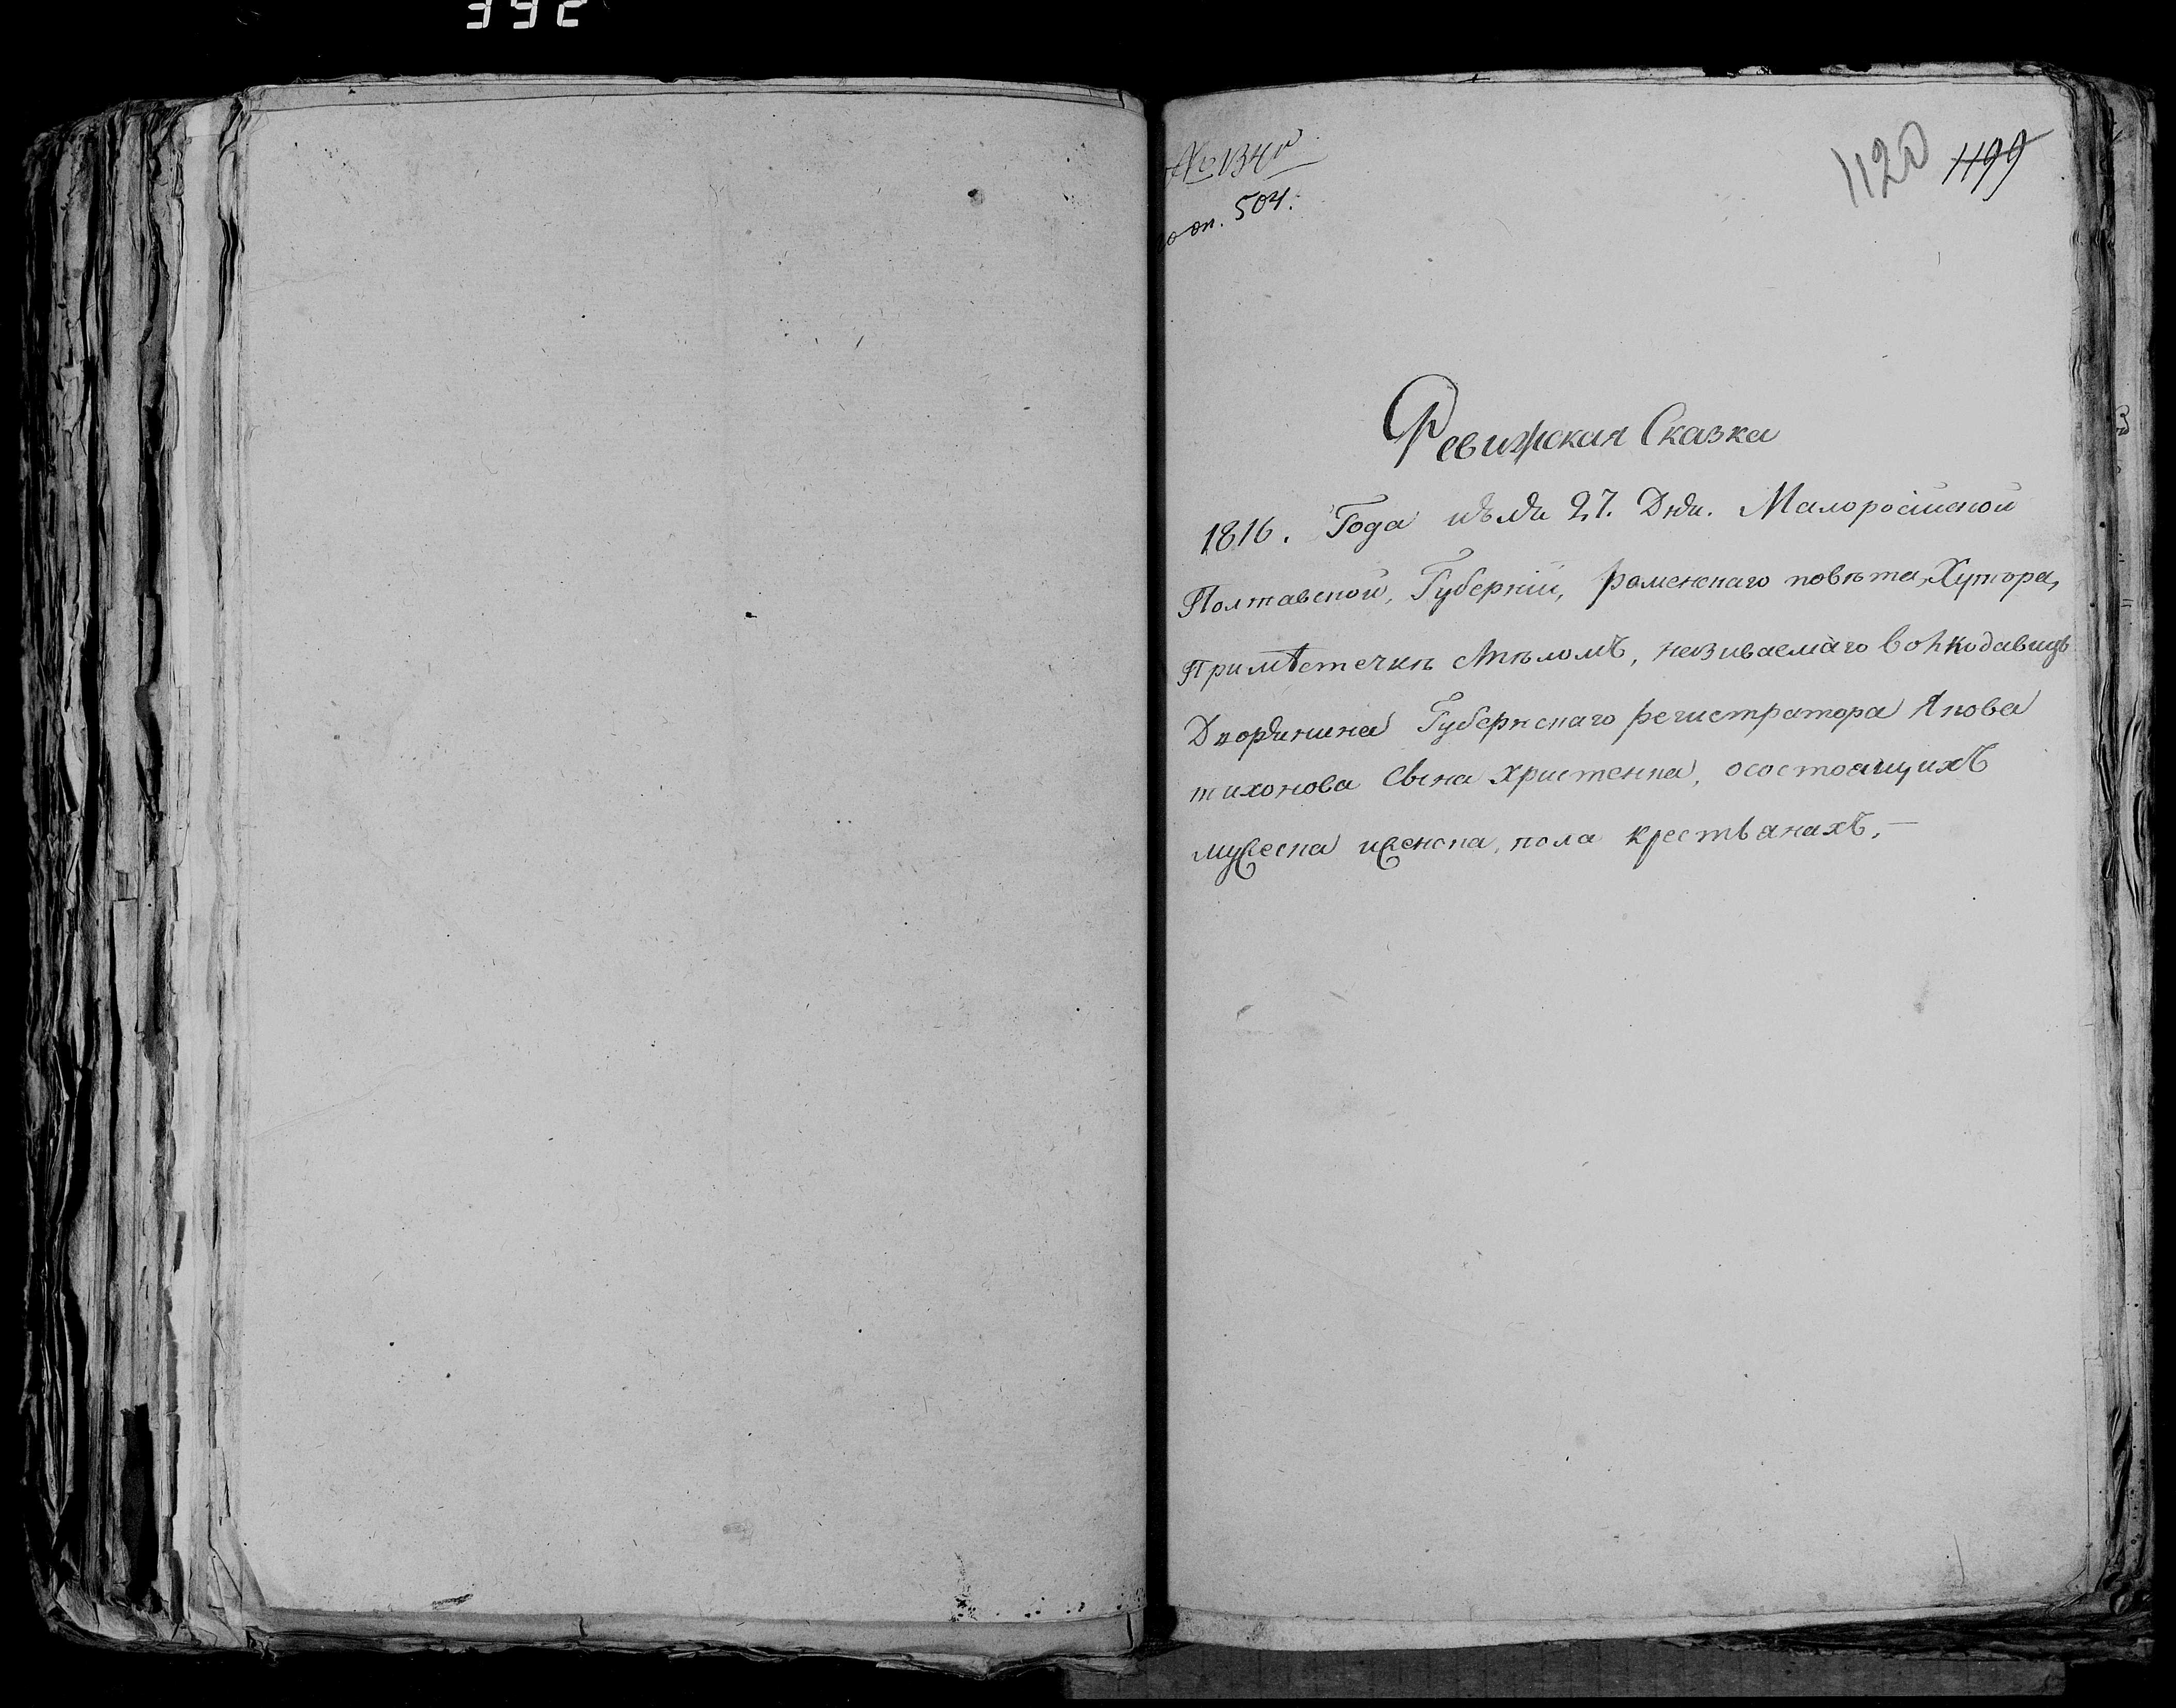 392
№ 134й
по оп. 504.
1120 1199
Ревизская Сказка
1816. Года июля 27. Дня. Малоросійской
Полтавской, Губерніи, роменскаго повѣта, Хутора,
При мѣстечкѣ Смѣломъ, називаемаго
Дворянина Губернскаго регистратора Якова
тихонова Сына христенка, осостоящихъ
мужеска иженска, пола крестьянахъ. —